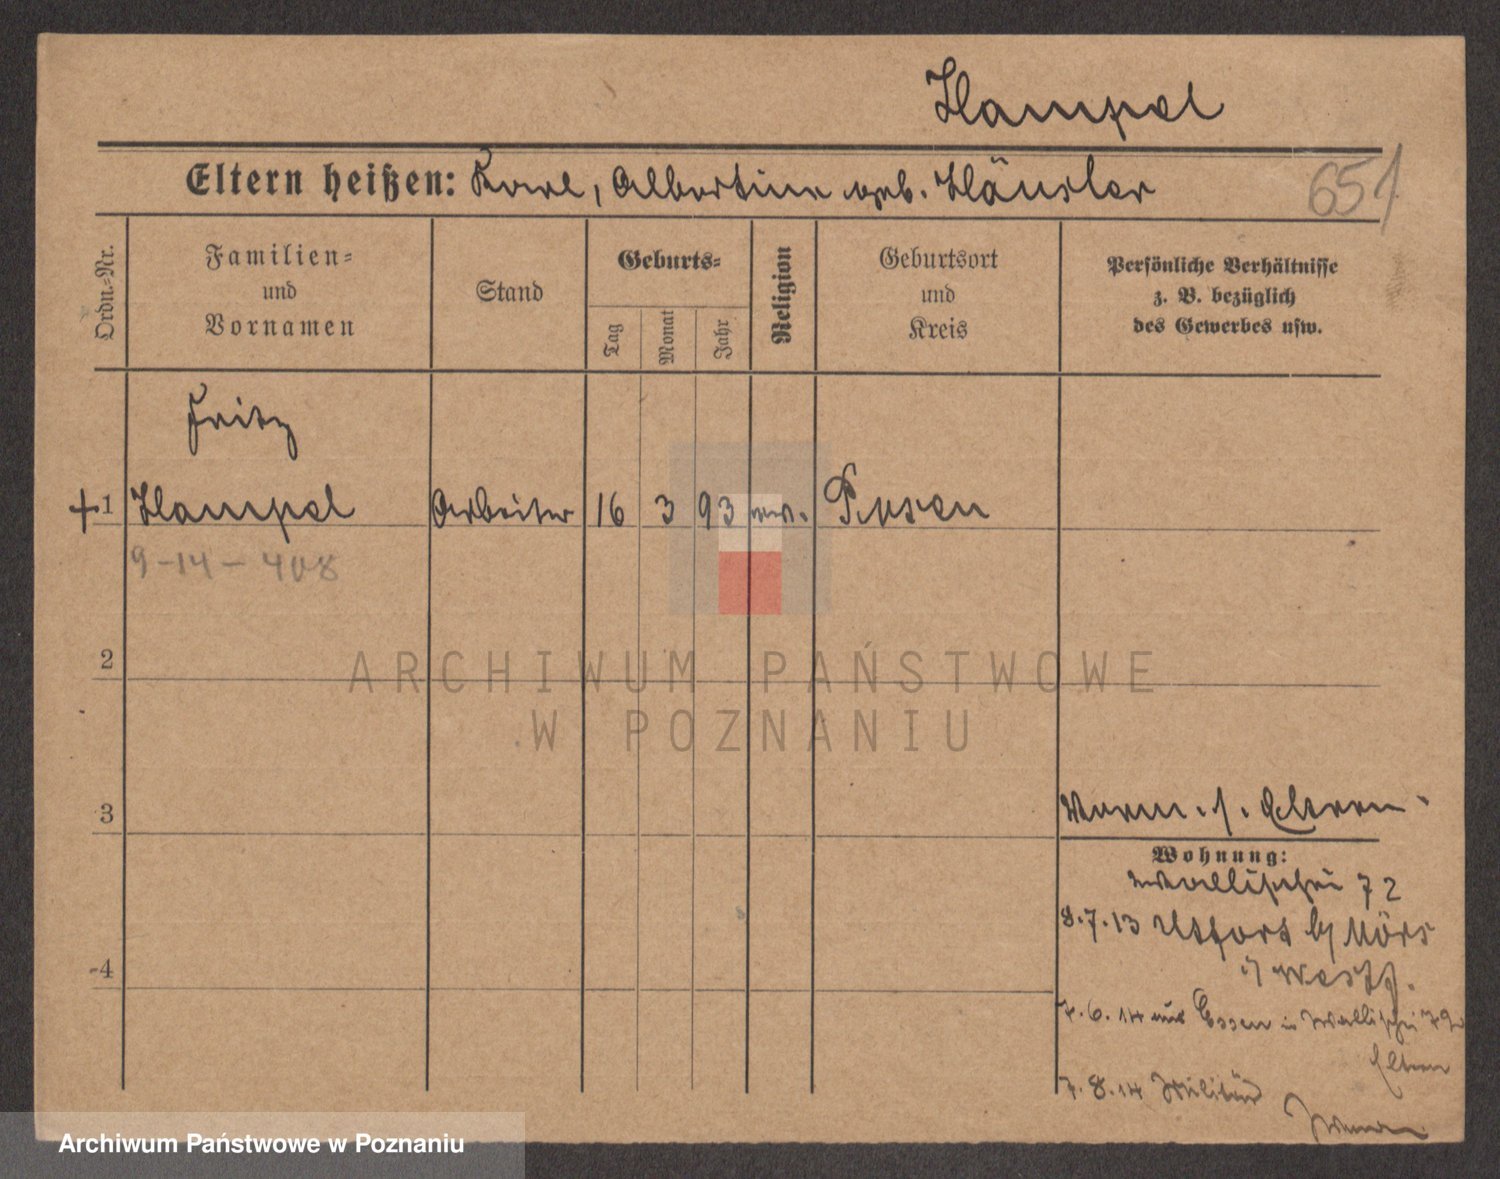 Hampel
Eltern heißen: Karl, Albertine geb. Häusler
651
Ordn.-Nr.
Familien=
und
Vornamen
Stand
Geburts=
Tag
Monat
Jahr
Religion
Geburtsort
und
Kreis
Persönliche Verhältnisse
z. B. bezüglich
des Gewerbes usw.
Fritz
+ 1 Hampel Arbeiter 16 3 93 ev. Posen
9-14-408
2
ARCHIWUM PAŃSTWOWE
W POZNANIU
3
Eltern
Wohnung:
Wallischei 72
8.7.13 Utfort b/ Mörs
i/ Westf.
4
7.6.14 aus Essen in Wallischei 79
Eltern
7.8.14 Militär
Archiwum Państwowe w Poznaniu